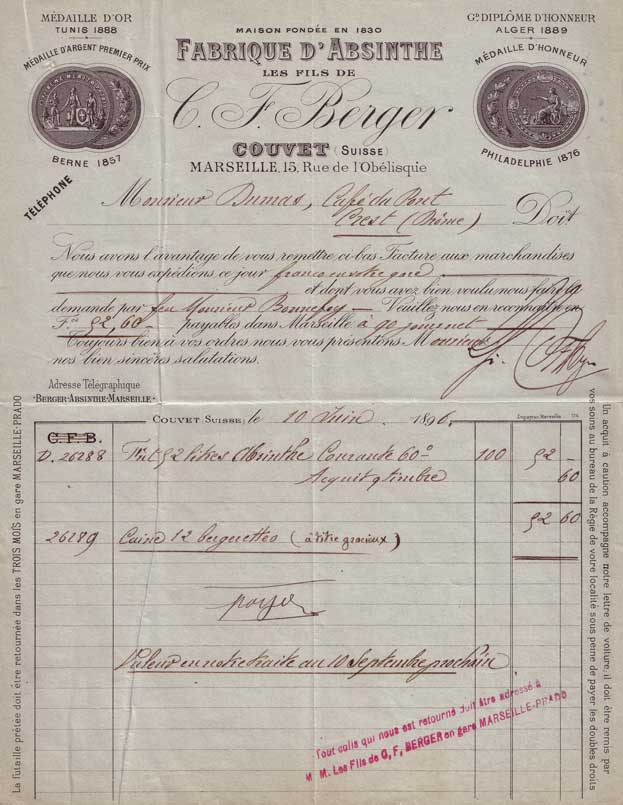 MÉDAILLE D'OR
TUNIS 1888
MÉDAILLE D'ARGENT PREMIER PRIX
BERNE 1857
MAISON FONDÉE EN 1830
FABRIQUE D'ABSINTHE
LES FILS DE
C. F. Berger
COUVET (SUISSE)
MARSEILLE, 15, Rue de l'Obélisque
Gᴰ DIPLÔME D'HONNEUR
ALGER 1889
MÉDAILLE D'HONNEUR
PHILADELPHIE 1876
TÉLÉPHONE
Monsieur Dumas, Café du Pont
Crest (Drôme) Doit
Nous avons l'avantage de vous remettre ci-bas Facture aux marchandises
que nous vous expédions ce jour franco en votre gare
et dont vous avez bien voulu nous faire la
demande par feu Monsieur Bonnefoy Veuillez nous en reconnaître en
Fcs 52,60 payables dans Marseille à 90 jours net
Toujours bien à vos ordres nous vous présentons Monsieur
nos bien sincères salutations.
Adresse Télégraphique
"BERGER-ABSINTHE-MARSEILLE"
COUVET SUISSE, le 10 Juin 1896.
C. F. B.
D. 26288 Fût 52 litres Absinthe Courante 60° 100 52 -
Acquit & timbre 60
52 60
26289 Caisse 12 baguettes (à titre gracieux)
Valeur en notre traite au 10 Septembre prochain
Tout colis qui nous est retourné doit être adressé à
M. M. Les Fils de C. F. BERGER en gare MARSEILLE-PRADO
La futaille prêtée doit être retournée dans les TROIS MOIS en gare MARSEILLE-PRADO
Un acquit à caution accompagne notre lettre de voiture; il doit être remis par
vos soins au bureau de la Régie de votre localité sous peine de payer les doubles droits